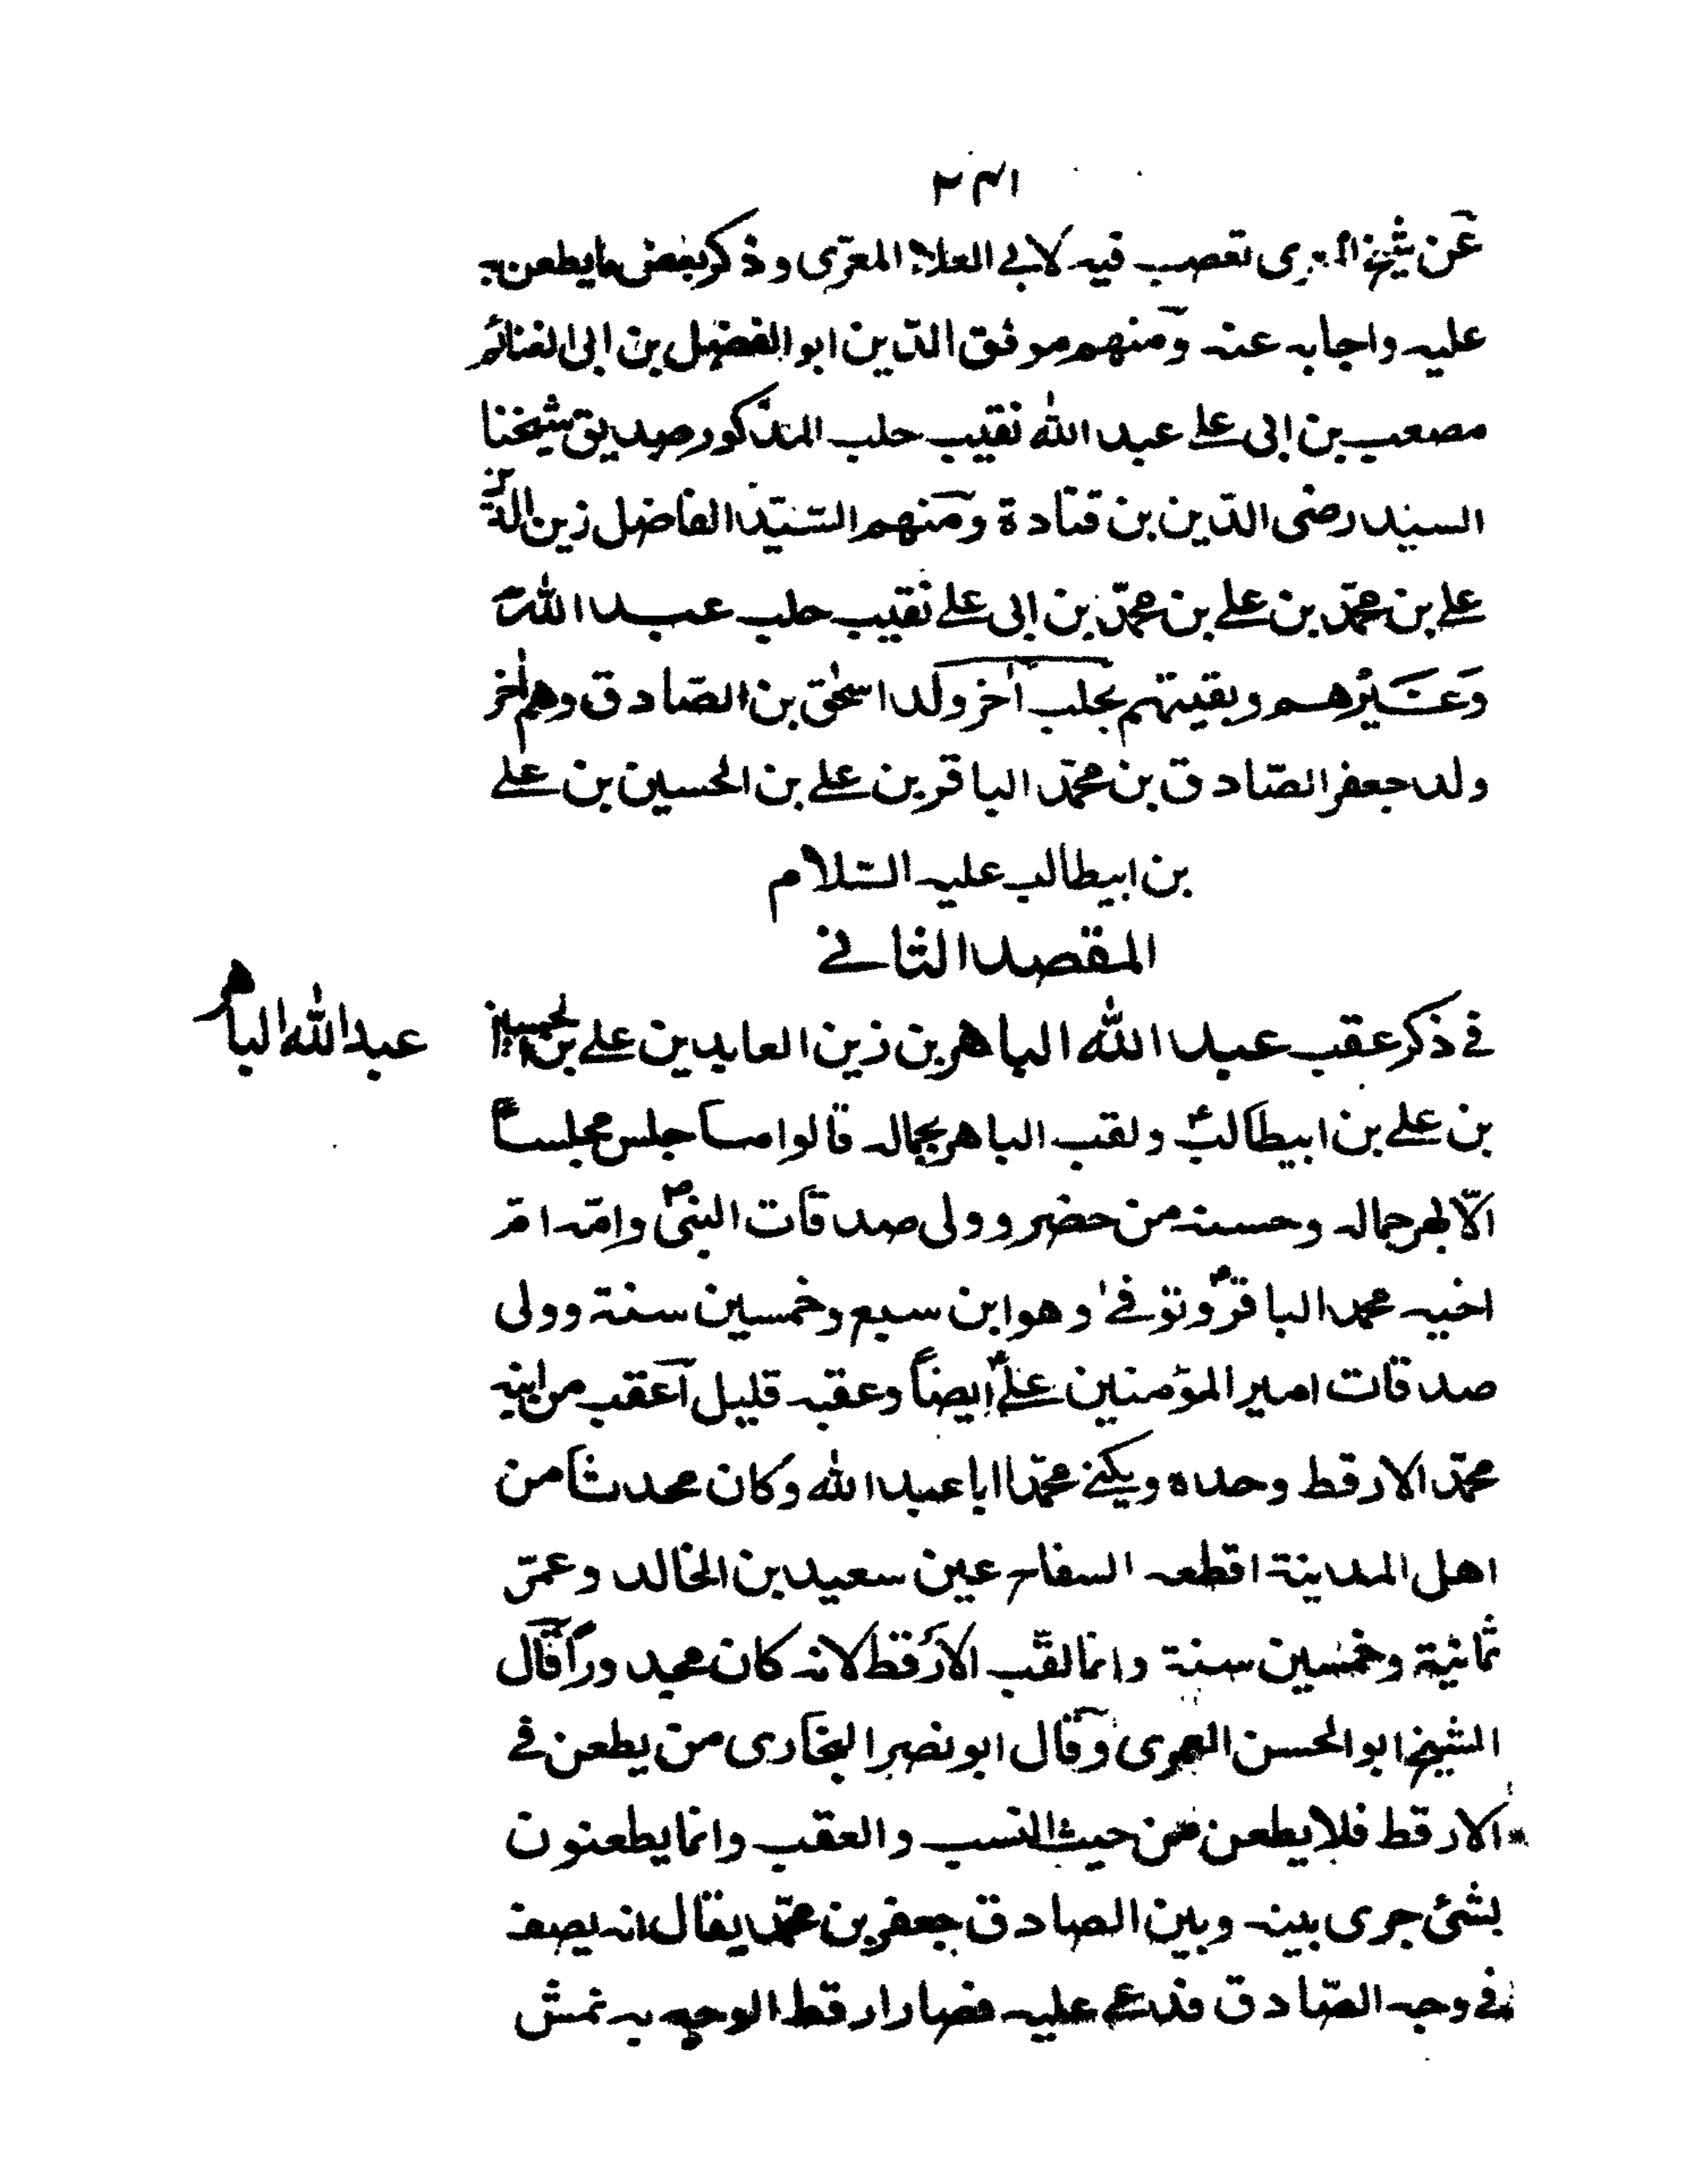 ٢٤١
عن شيخ تعصب فيه لابي العلاء المعرّى وذكر بعض ما يطعن به
عليه واجابه عنه ومنهم موفق الدّين ابوالفضل بن ابى الغنائم
مصعب بن ابى على عبد الله نقيب حلب المذكور صديق شيخنا
السيد رضى الدّين بن قتادة ومنهم السّيّد الفاضل زين الدّين
على بن محمّد بن على بن محمّد بن ابى على نقيب حلب عبد الله
وغيرهم وبقيتهم بحلب آخر ولد اسحٰق بن الصّادق وهم اٰخر
ولد جعفر الصّادق بن محمّد الباقر بن على بن الحسين بن على
بن ابيطالب عليه السّلام
المقصد الثانى
فى ذكر عقب عبد الله الباهر بن زين العابدين على بن الحسين
عبد الله الباهر
بن على بن ابيطالبؑ ولقب الباهر بجماله قالوا ما جلس مجلساً
الّا بهر جماله وحسنه من حضر وولى صدقات النبىؐ وامّه امّ
اخيه محمد الباقرؑ وتوفى وهو ابن سبع وخمسين سنة وولى
صدقات امير المؤمنين علىؑ ايضاً وعقبه قليل اعقب من ابنه
محمّد الارقط وحده ويكنى محمّد ابا عبد الله وكان محدثا من
اهل المدينة اقطعه السفاح عين سعيد بن الخالد وعمّر
ثمانية وخمسين سنة وانما لقّب الارقط لانه كان مجدوراً قال
الشيخ ابوالحسن العمرى وقال ابو نصر البخارى من يطعن فى
الارقط فلا يطعن من حيث النسب والعقب وانما يطعنون
بشئ جرى بينه وبين الصادق جعفر بن محمّد يقال انه بصق
فى وجه الصّادق فدعى عليه فصار ارقط الوجه به نمش